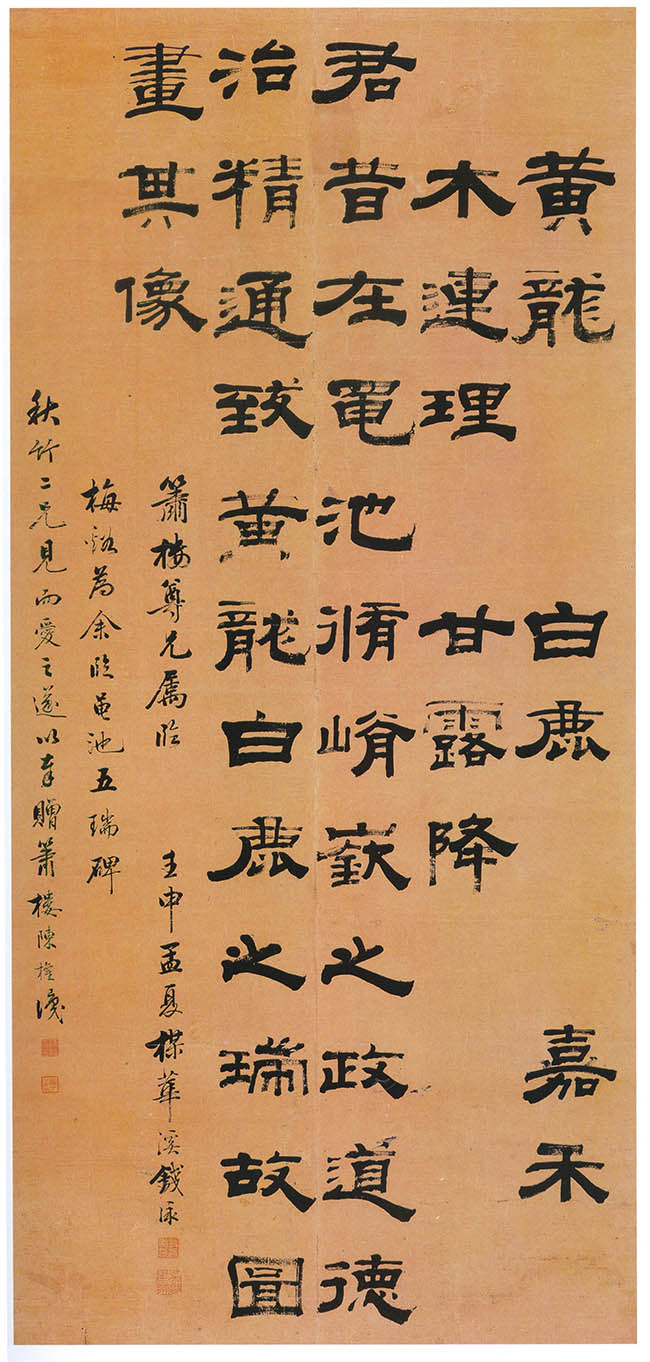 黄龍 白鹿 嘉禾
木連理 甘露降
君昔在黽池脩崤嶔之政道德
治精通致黄龍白鹿之瑞故圖
畫其像
簫樓尊兄属臨 壬申孟夏楳華溪錢泳
梅谿為余臨黽池五瑞碑
秋竹二兄見而愛之遂以奉贈簫樓陳識